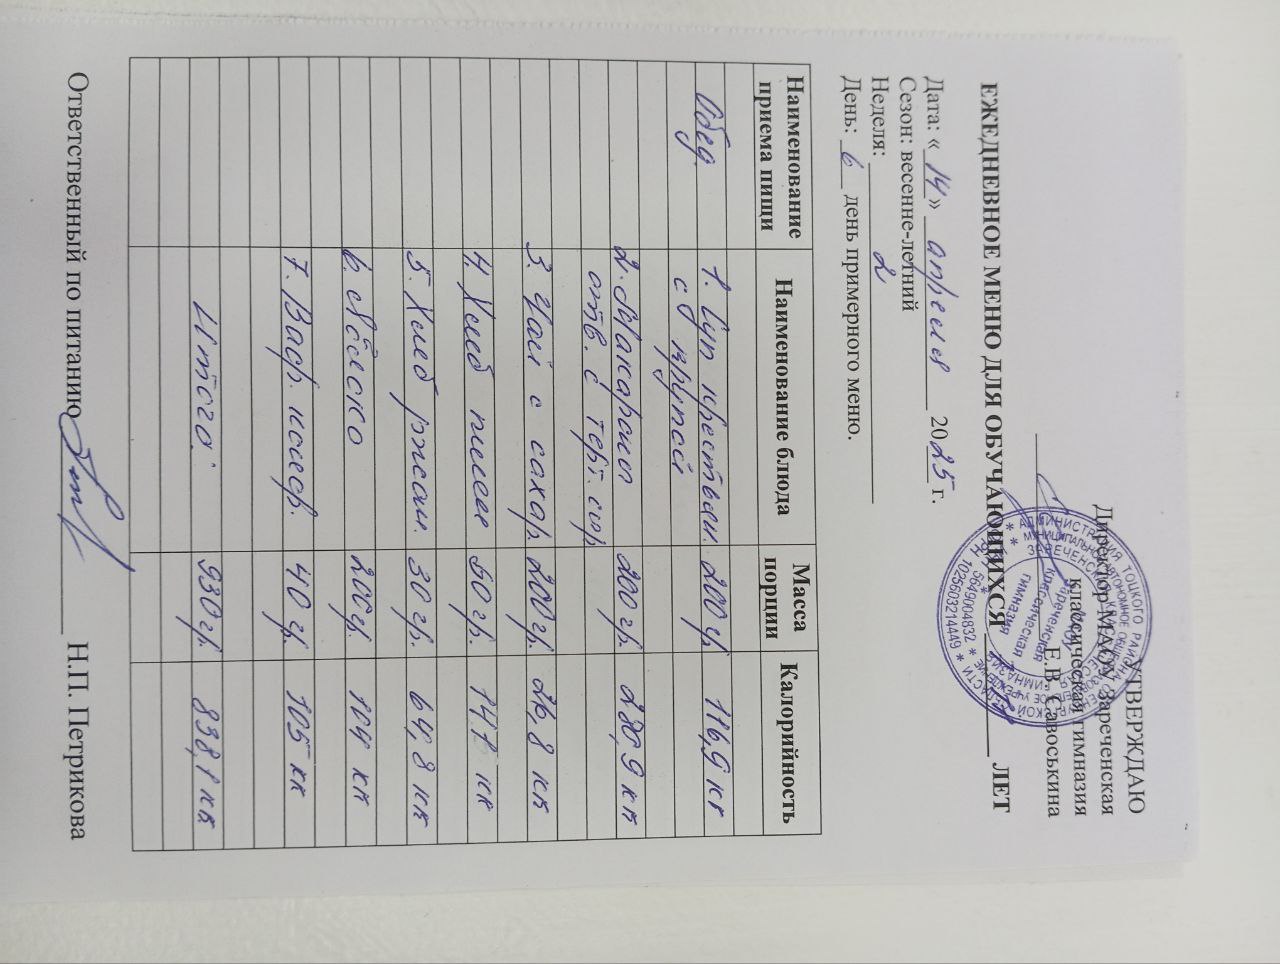 УТВЕРЖДАЮ
Директор МАОУ Зареченская
классическая гимназия
Е.В. Савоськина
ЕЖЕДНЕВНОЕ МЕНЮ ДЛЯ ОБУЧАЮЩИХСЯ ЛЕТ
Дата: «14» апреля 2025 г.
Сезон: весенне-летний
Неделя: 2
День: 6 день примерного меню.
Наименование приема пищи Наименование блюда Масса порции Калорийность
Обед 1. Суп крестьян. 200 гр. 116,9 кк
с крупой
2. Макароны 200 гр. 280,9 кк
отв. с терт. сыр.
3. Чай с сахар. 200 гр. 26,8 кк
4. Хлеб пшен 50 гр. кк
5. Хлеб ржан. 30 гр. 64,8 кк
6. Яблоко 200 гр. 104 кк
7. Ваф. 40 гр. 105 кк
Итого: 930 гр. 838,1 кк
Ответственный по питанию Н.П. Петрикова
АДМИНИСТРАЦИЯ ТОЦКОГО РАЙОНА
Зареченская
классическая
гимназия
5649004832
1025603214449